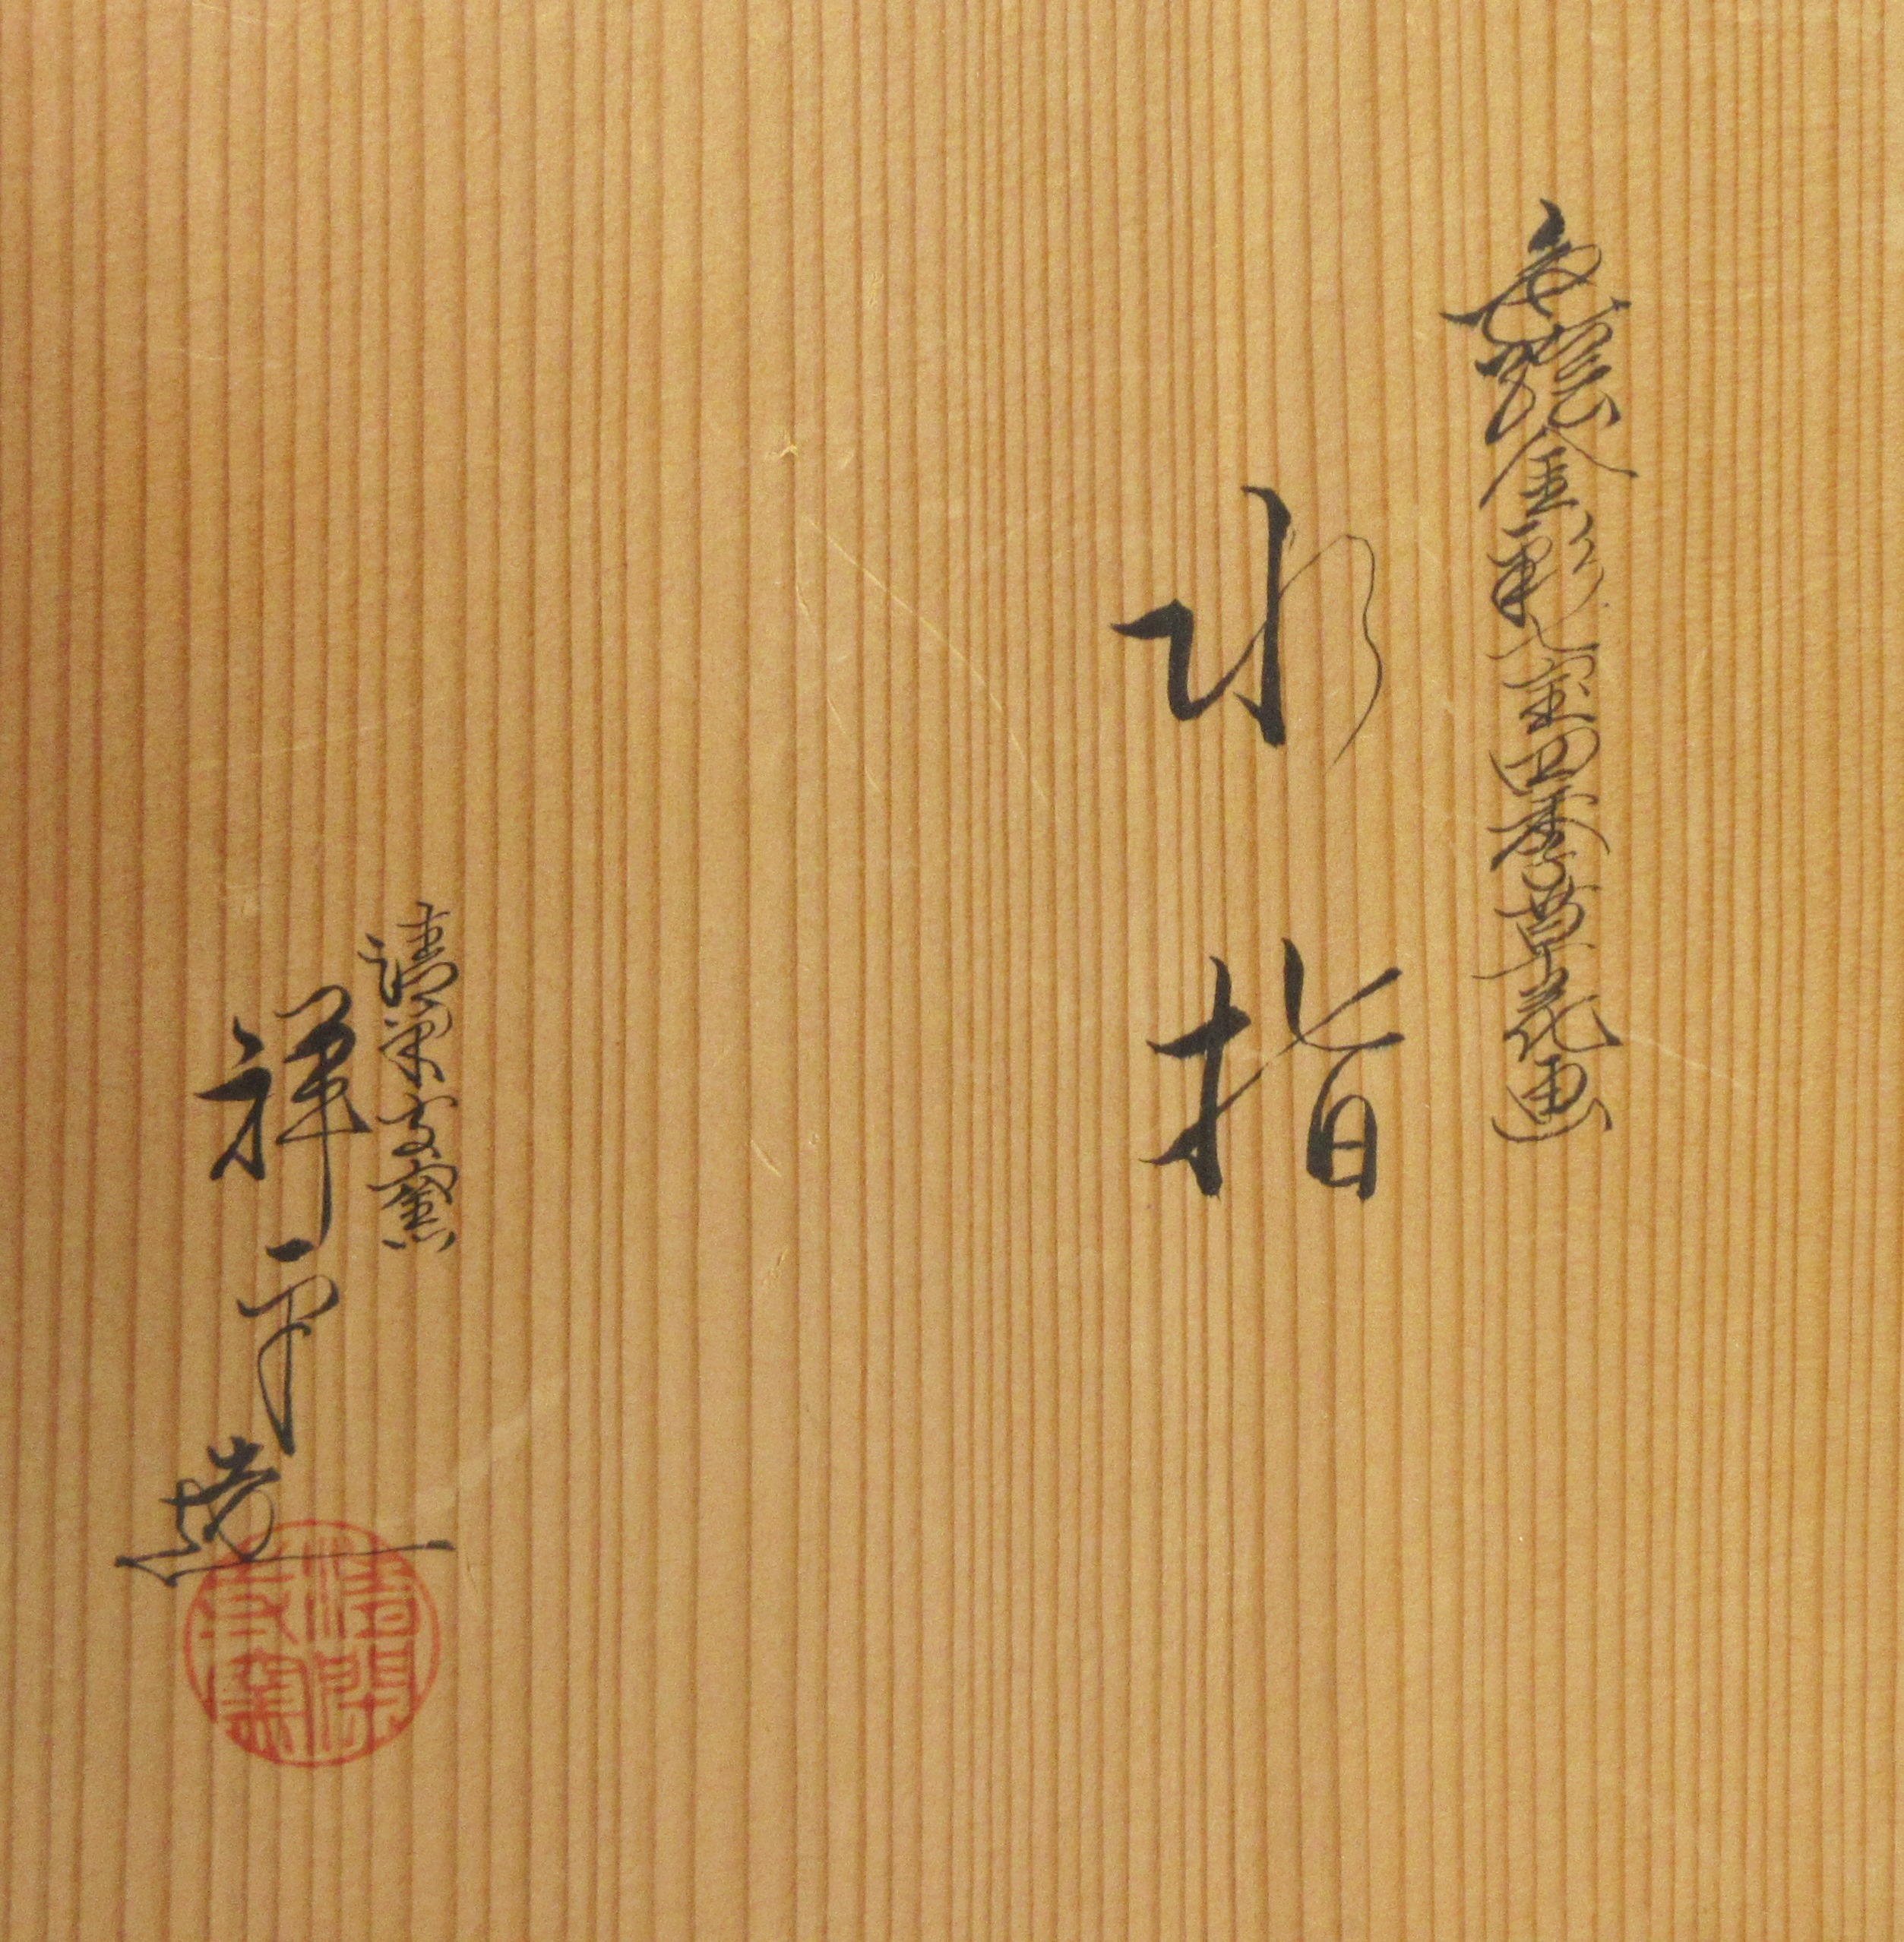 色絵金彩七宝四季草花画
水指
清閑寺窯
祥平造
清閑寺窯